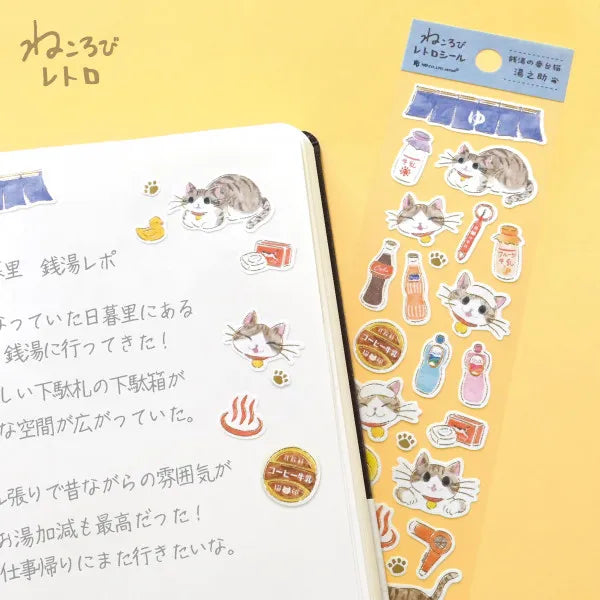 ねころび
レトロ
ねころび
レトロシール
銭湯の番台猫
湯之助
ゆ
牛乳
フルーツ
牛乳
コーヒー牛乳
里 銭湯レポ
なっていた日暮里にある
銭湯に行ってきた！
しい下駄札の下駄箱が
な空間が広がっていた。
コーヒー牛乳
張りで昔ながらの雰囲気が
お湯加減も最高だった！
仕事帰りにまた行きたいな。